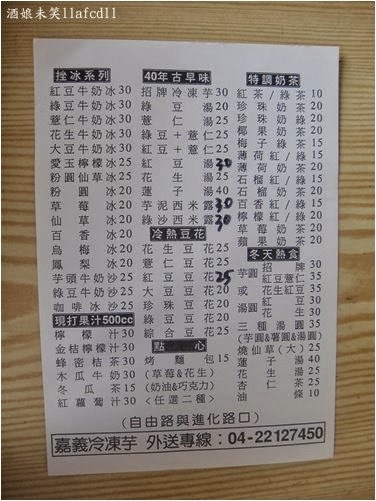 酒娘未笑11afcd11
挫冰系列
紅豆牛奶冰30
綠豆牛奶冰30
薏仁牛奶冰30
花生牛奶冰30
大豆牛奶冰30
愛玉檸檬冰25
粉圓仙草冰25
粉圓冰20
草莓冰20
仙草冰20
百香冰20
烏梅冰20
鳳梨冰20
芋頭牛奶沙25
綠豆牛奶沙25
咖啡冰沙25
現打果汁500cc
檸檬汁30
金桔檸檬汁30
蜂蜜桔茶30
木瓜牛奶30
冬瓜茶15
紅蘿蔔汁30
40年古早味
招牌冷凍芋30
綠豆湯20
薏仁湯25
綠豆+薏仁25
紅豆湯30
花生湯
蓮子湯40
芋泥西米露30
綠沙西米露30
冷熱豆花
花生豆花25
薏仁豆花25
紅豆豆花25
大豆豆花25
珍珠豆花20
綠豆豆花20
綜合豆花25
點心
烤麵包15
(草莓&花生)
(奶油&巧克力)
<任選二種>
特調奶茶
紅茶/綠茶10
珍珠奶茶20
珍珠奶綠20
椰果奶茶20
梅子綠茶15
薄荷紅/綠15
薄荷奶茶20
石榴紅/綠15
石榴奶茶20
百香紅/綠15
檸檬紅/綠20
草莓奶茶20
蘋果奶茶20
冬天熱食
芋圓
或
湯圓
招牌30
紅豆薏仁35
花生紅豆35
紅豆30
花生35
三種湯圓35
(芋圓&薯圓&湯圓)
燒仙草(大)25
蓮子湯40
花生湯25
杏仁茶25
油條10
(自由路與進化路口)
嘉義冷凍芋 外送專線:04-22127450